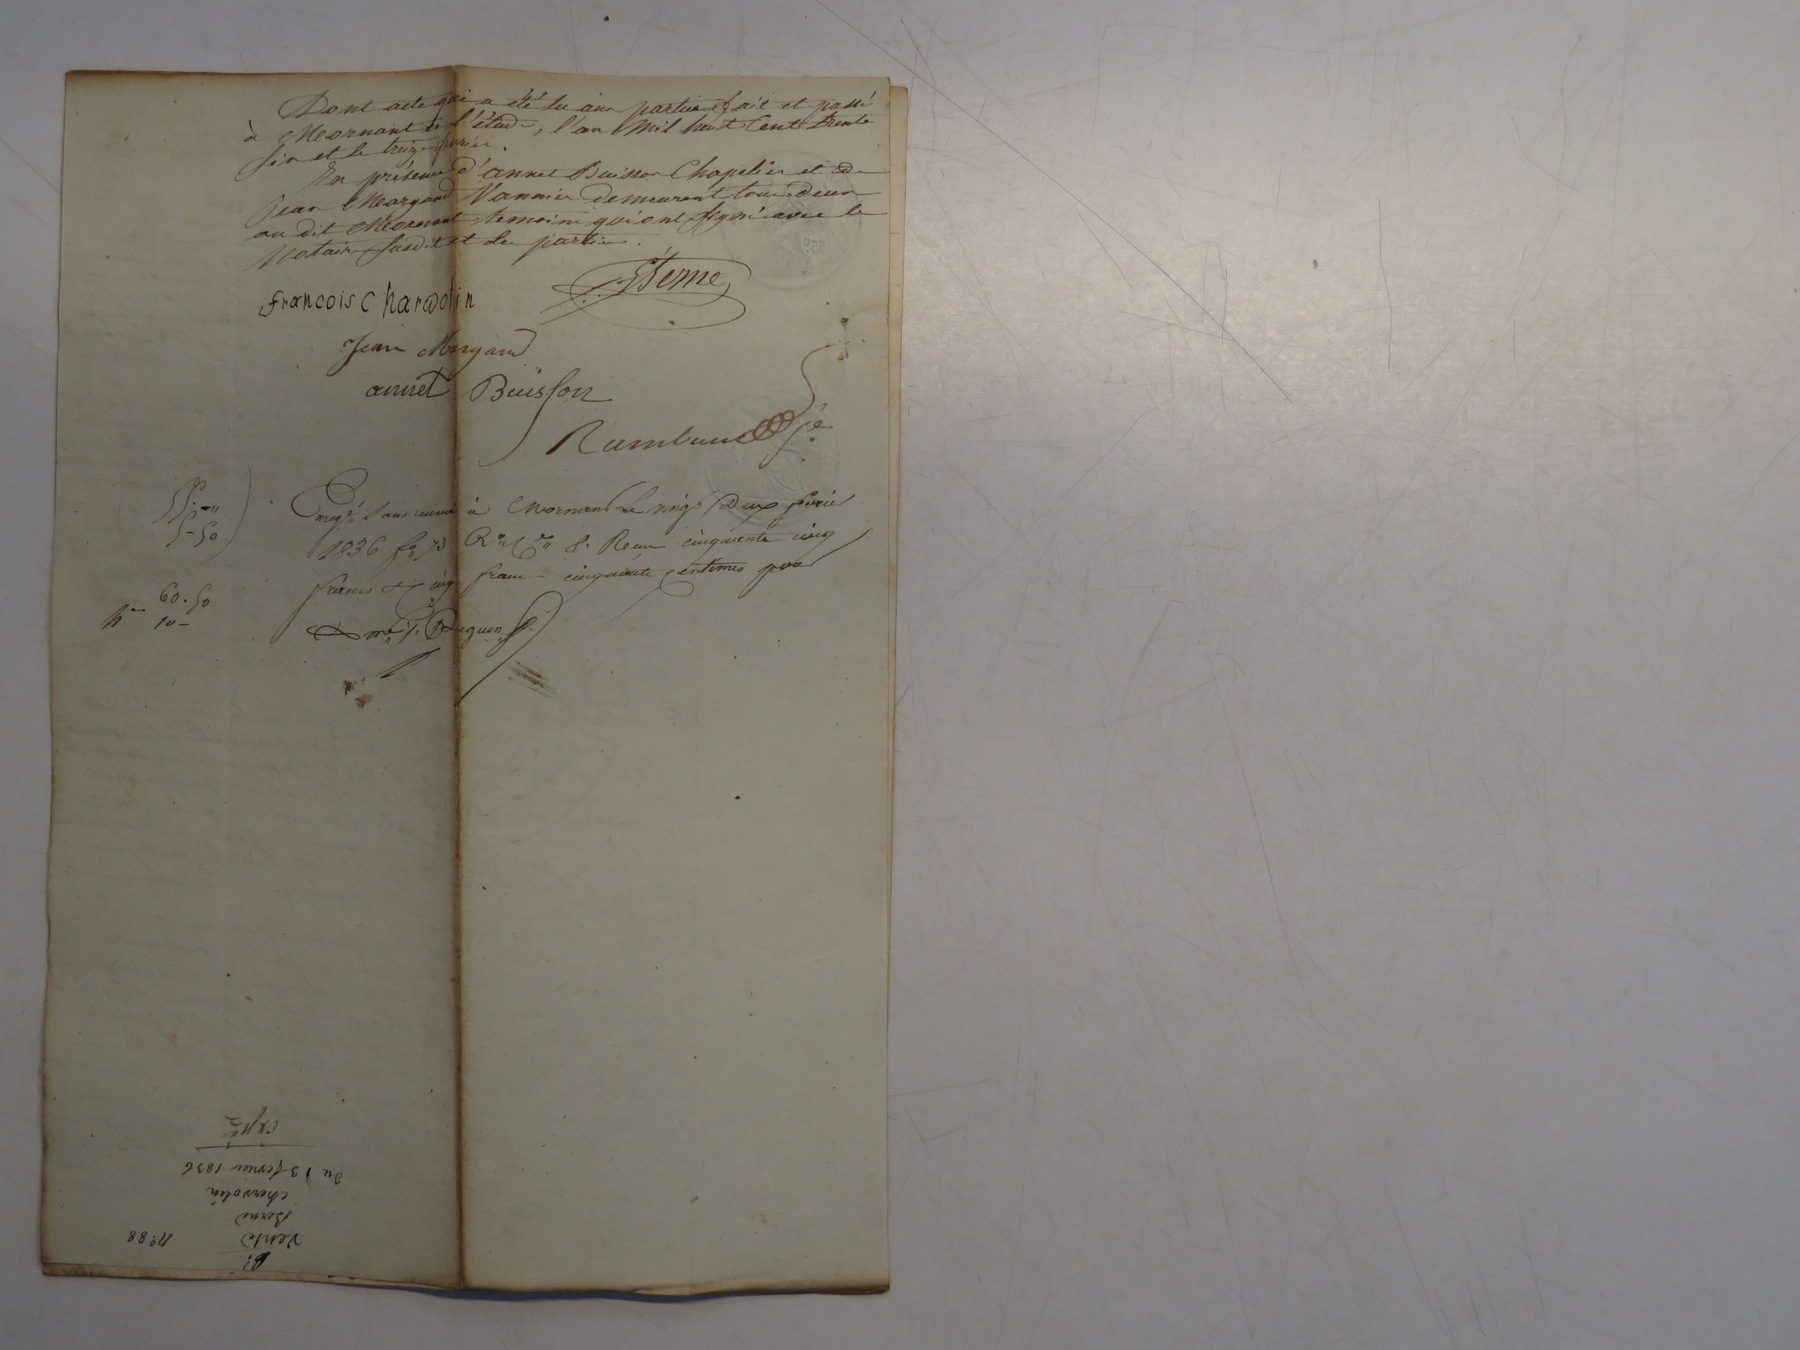 Dont acte qui a été lu aux parties, fait et passé
à Mornant en l'étude, l'an Mil huit Cent trente
six et le treize février.
En présence d'annet Buisson Chapelier et de
Jean Margand Vannier demeurant tous deux
au dit Mornant temoins qui ont signé avec le
Notaire susdit et les parties.
francois Chardolin
Berne
Jean Margand
annet Buisson
à Mornant Le vingt Deux février
1836 Reçu cinquante cinq
francs et cinq francs cinquante centimes pour
55-"
5-50
60-50
10-
Beguin
Vente
Berne
chardolin
Du 13 février 1836
Expé
n° 88